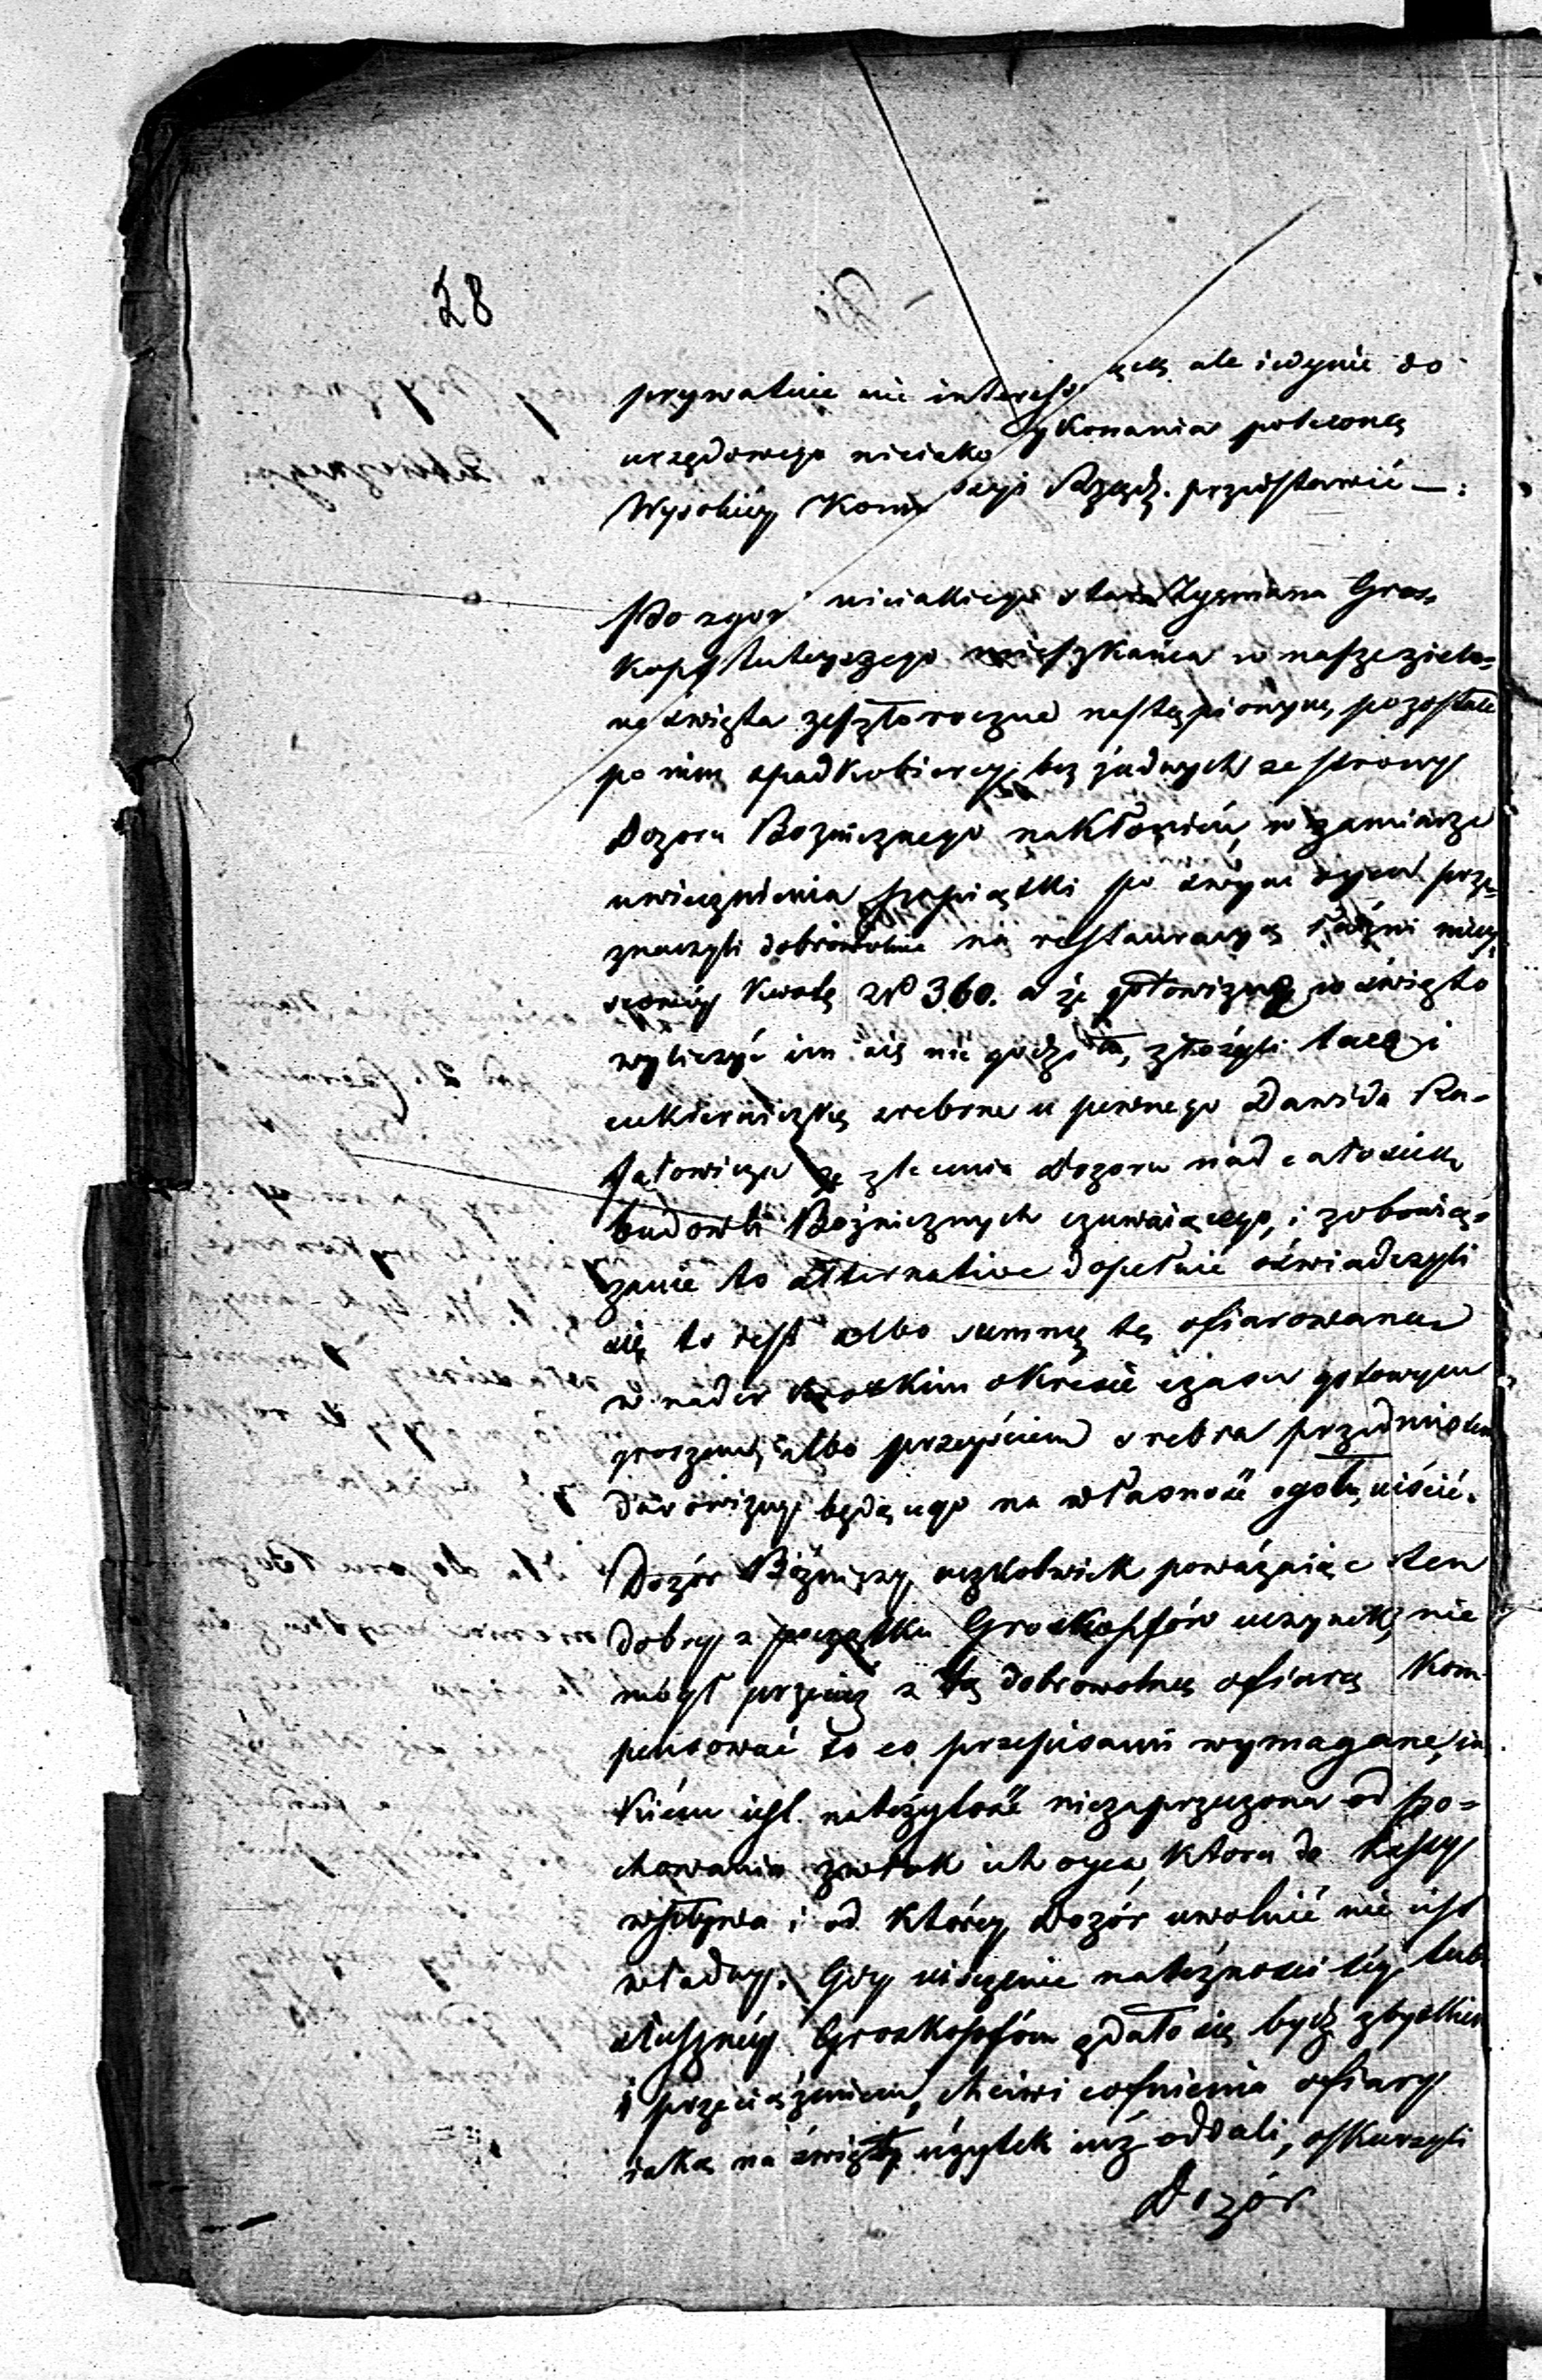 28
prywatnie nie intereso ący ale iedynie do
urzędowego nieiako wykonania poleconą
Wysokiéy Kom sayi Rządz. przedstawić —:
Po zgon nieiakiego Zygmana Gros,
kopf tuteyszego mieszkańca w nasze zielo=
ne święta zeszłoroczne nastąpionym, pozostali
po nim spadkobiercy, bez żadnych ze strony
Dozoru Bożnicznego nakłonień, w zamiarze
uwiecznienia pamiątki po swym oycu prze=
znaczyli dobrowolnie na restauracyą łaźni miey,
scowéy kwotę zł 360. a że gotowizny w święto
wyliczyć im się nie godziło, złożyli tacę i
cukierniczkę srebrne u pewnego Dawida Ra-
fałowicza ze zlecenia Dozoru nad całością
budowli Bożnicznych czuwaiącego, i zobowią=
zanie to alternative dopełnić oświadczyli
się to iest albo summę tę ofiarowaną
w nader krótkim okresie czasu gotowym
groszem, albo przeyściem srebra przedmiotem
darowizny będącego na własność ogółu, uiścić.
Dozór Bóżniczny, aczkolwiek poważaiąc ten
dobry z początku Groskopfów uczynek, nie
mógł przecież z tą dobrowolną ofiarą kom
pensować to co przepisami wymagane, ia
kiém iest należytość niezaprzeczona od po=
chowania zwłok ich oyca, która do kassy
wpływa i od któréy Dozór uwolnić nie iest
władny. Gdy uiszczenie należności téy lubo
słusznéy Groskopfóm zdało się bydź zbytkiem
i przeciążeniem, chciwi cofnienia ofiary
iaką na święty użytek iuż oddali, oskarżyli
Dozór